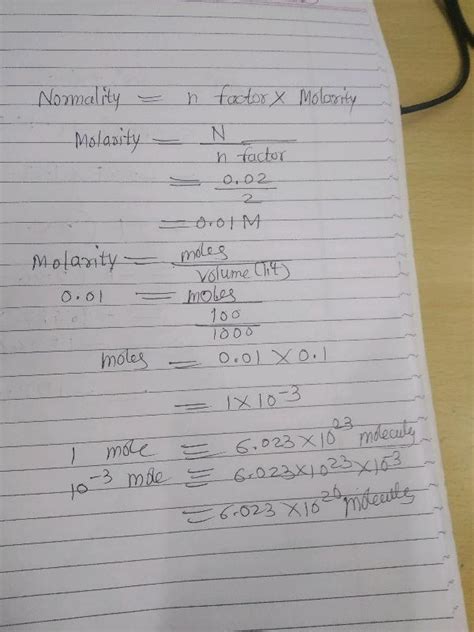 Normality = n factor × Molarity
Molarity = N
n factor
= 0.02
2
= 0.01 M
Molarity = moles
volume (lit)
0.01 = moles
100
1000
moles = 0.01 × 0.1
= 1 × 10⁻³
1 mole = 6.023 × 10²³ molecules
10⁻³ mole = 6.023 × 10²³ × 10⁻³
= 6.023 × 10²⁰ molecules